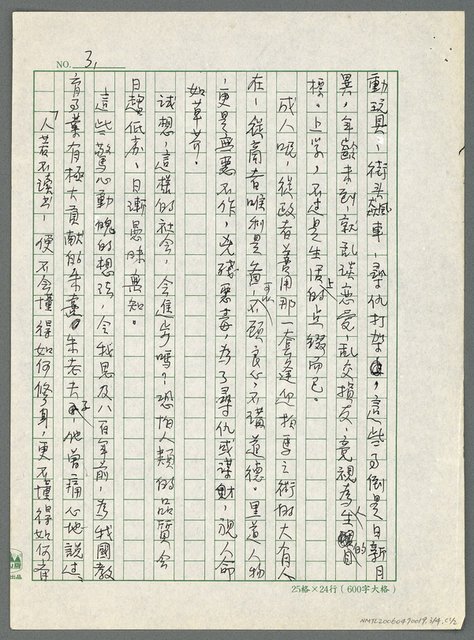 NO. 3,
動玩具,街頭飆車,尋仇打架,這些事倒是日新月
異,年齡未到,就亂談戀愛,亂交損友,竟視為人生的目
標。上學,不過是生活上的點綴而已。
成人呢,從政者善用那一套逢迎拍馬之術的大有人
在,從商者唯利是圖,不顧良心,不講道德。黑道人物
,更是無惡不作,兇殘惡毒,為了尋仇或謀財,視人命
如草芥。
試想,這樣的社會,會進步嗎?恐怕人類的品質會
日趨低劣,日漸愚昧無知。
這些驚心動魄的想法,令我思及八百年前,為我國教
育事業有極大貢獻的朱熹朱老夫子,他曾痛心地說過:
「人若不讀書,便不會懂得如何修身,更不懂得如何齊
25格×24行(600字大格)
NMTL20060470019, 3/4, C1/2